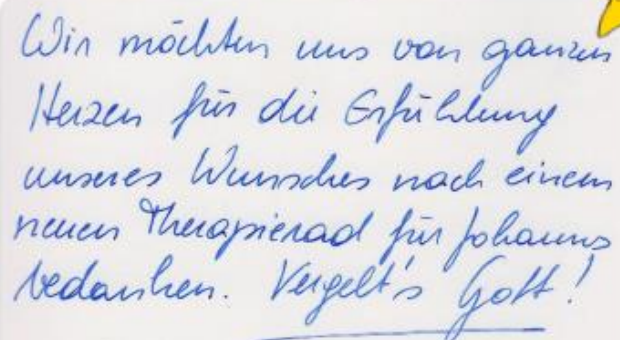 Wir möchten uns von ganzen
Herzen für die Erfühlung
unseres Wunsches nach einem
neuen Therapierad für Johannes
bedanken. Vergelt's Gott!